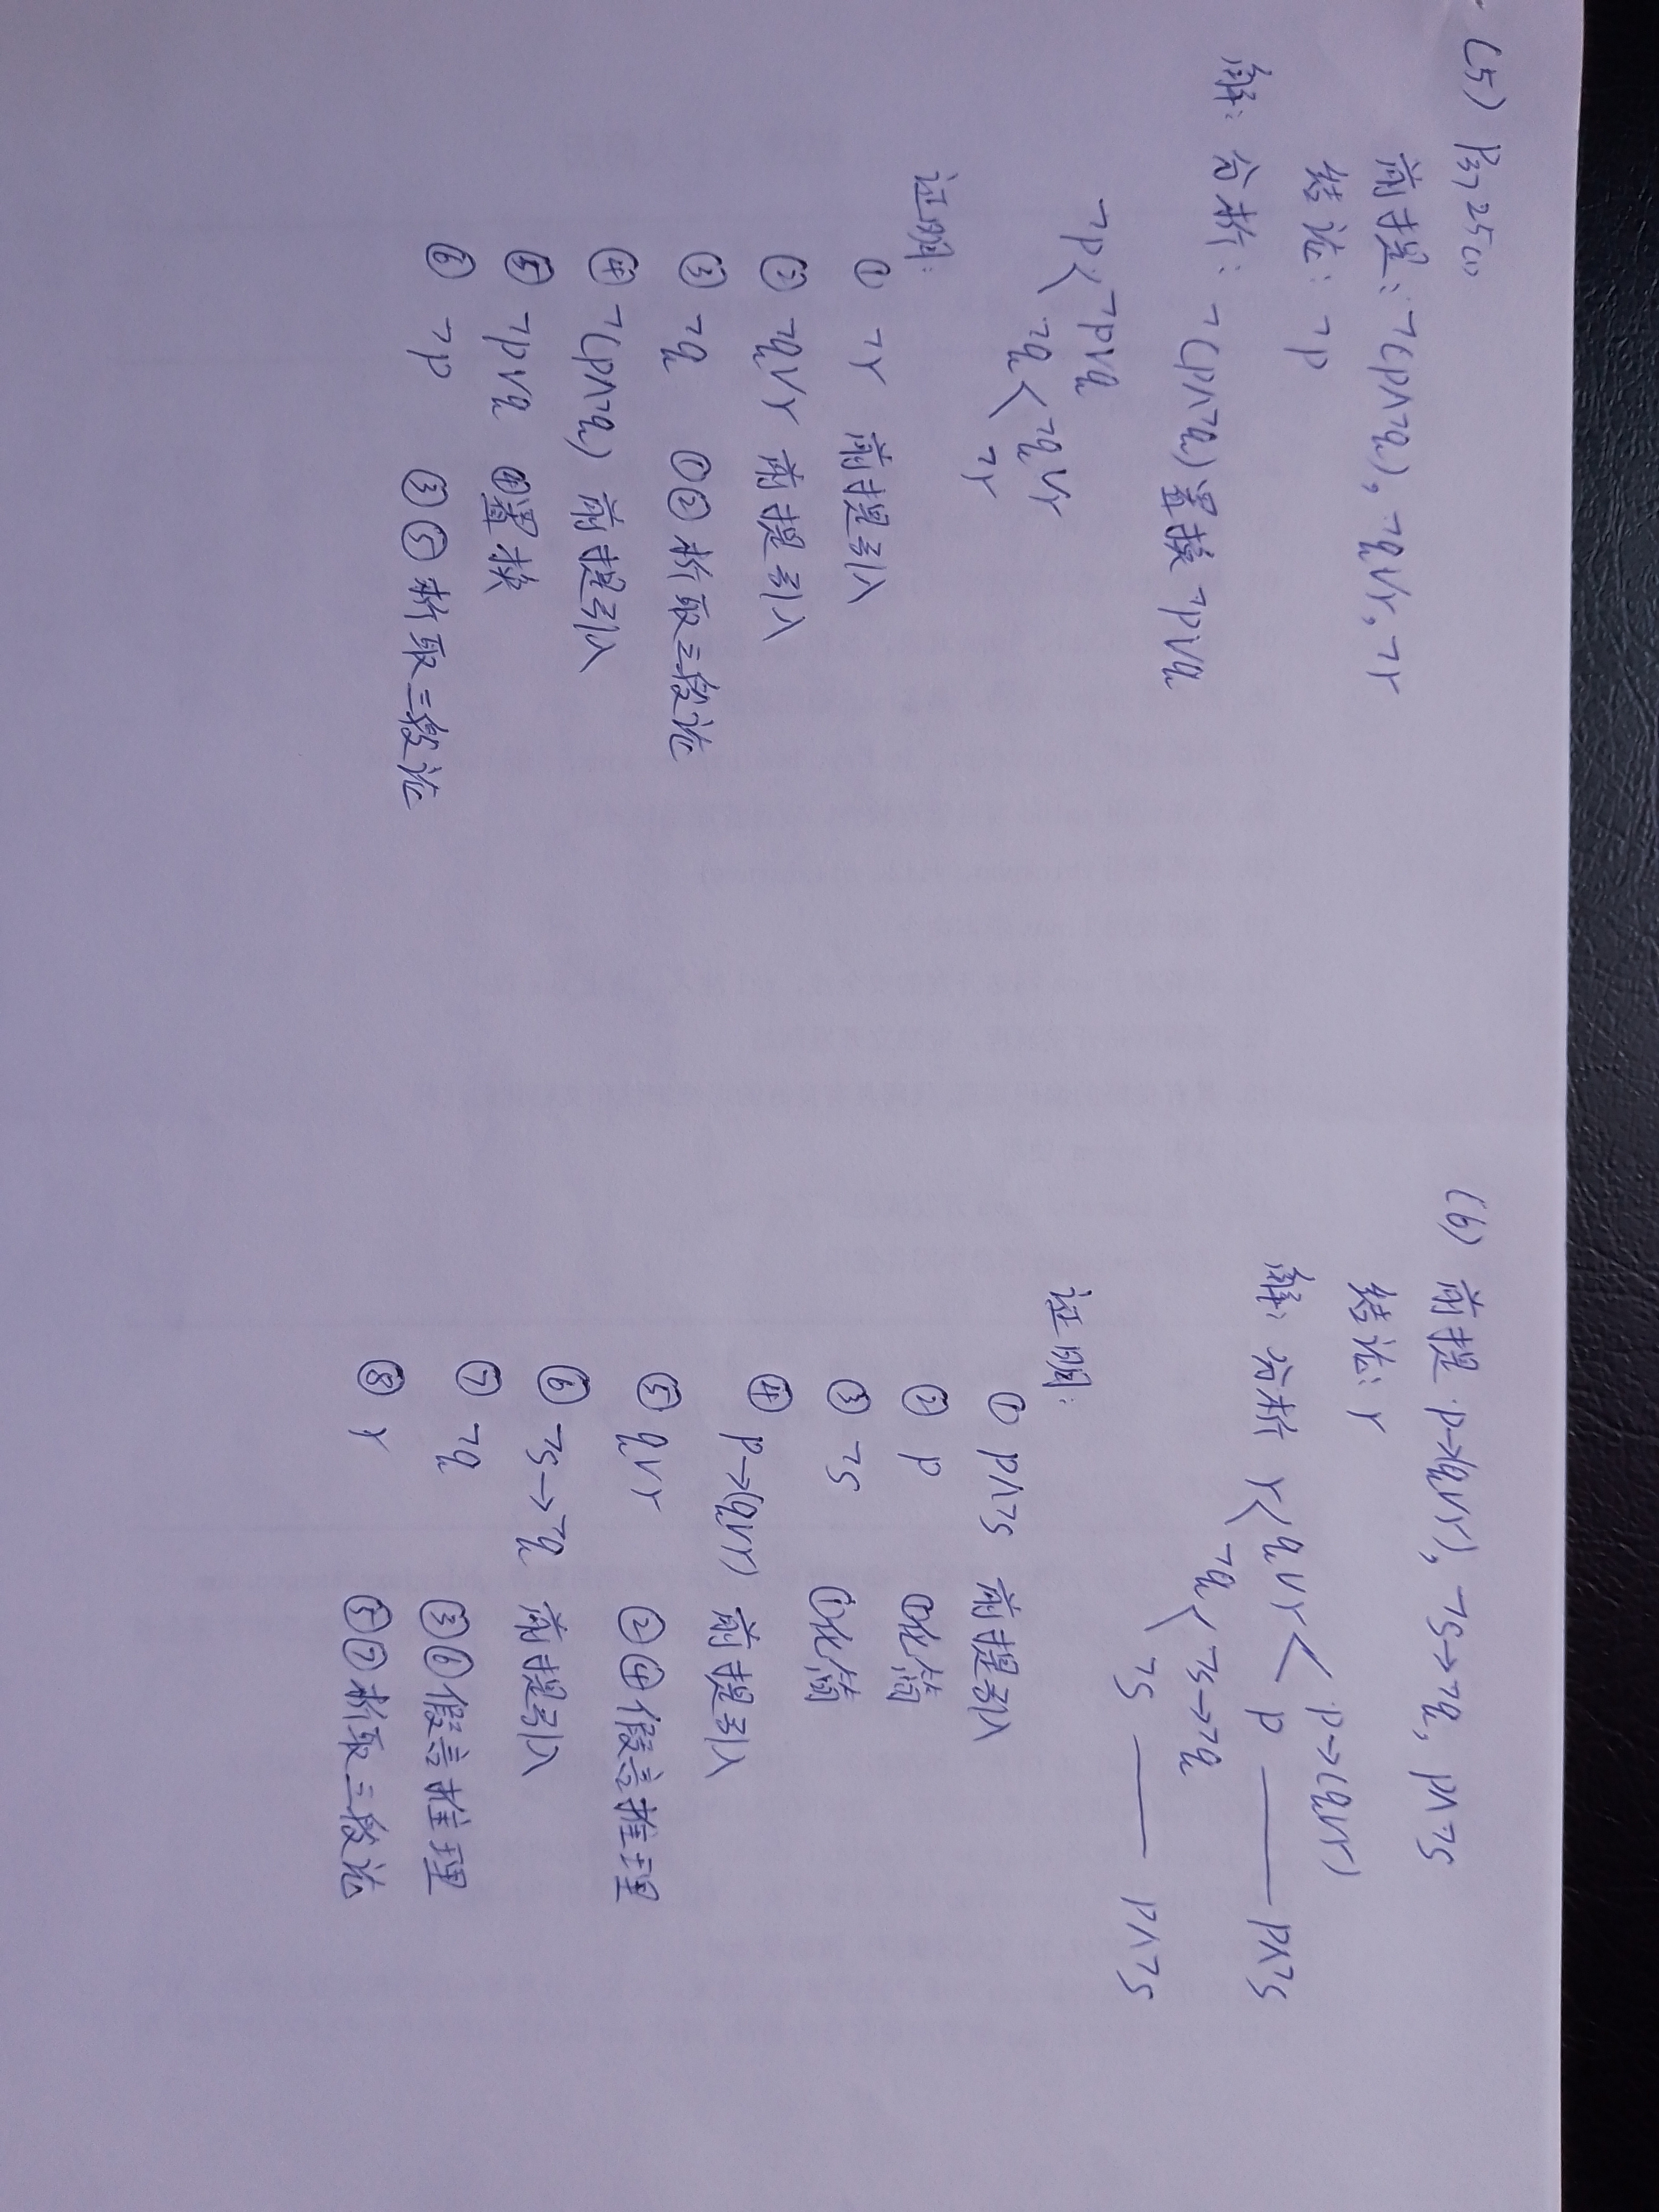 (5) P37 25(1)
前提: ¬(p∧¬q), ¬q∨r, ¬r
结论: ¬p
解: 分析:
¬(p∧¬q) 置换 ¬p∨q
¬p < ¬p∨q
¬q < ¬q∨r
¬r
证明:
① ¬r 前提引入
② ¬q∨r 前提引入
③ ¬q ①②析取三段论
④ ¬(p∧¬q) 前提引入
⑤ ¬p∨q ④置换
⑥ ¬p ③⑤析取三段论
(6) 前提 p→(q∨r), ¬s→¬q, p∧¬s
结论: r
解: 分析 r < q∨r < p→(q∨r)
p —— p∧¬s
¬q < ¬s→¬q
¬s —— p∧¬s
证明:
① p∧¬s 前提引入
② p ①化简
③ ¬s ①化简
④ p→(q∨r) 前提引入
⑤ q∨r ②④假言推理
⑥ ¬s→¬q 前提引入
⑦ ¬q ③⑥假言推理
⑧ r ⑤⑦析取三段论